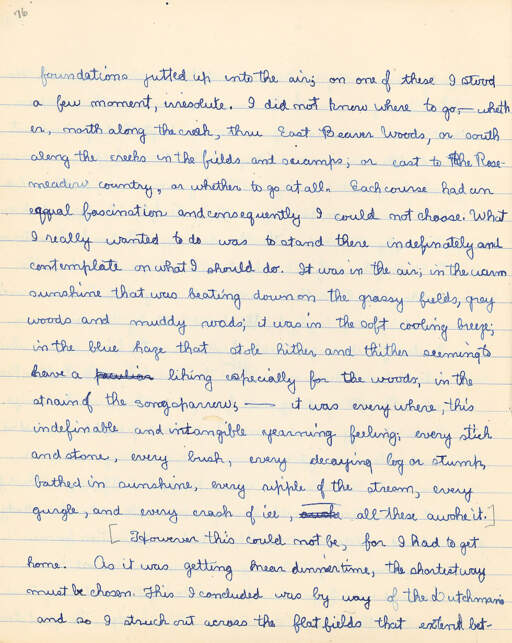 76
foundations jutted up into the air; on one of these I stood
a few moment, irresolute. I did not know where to go, — wheth
er, north along the creek, thru East Beaver Woods, or south
along the creeks in the fields and swamps; or east to the Rose-
meadow country, or whether to go at all. Each course had an
eqqual fascination and consequently I could not choose. What
I really wanted to do was to stand there indefinately and
contemplate on what I should do. It was in the air; in the warm
sunshine that was beating down on the grassy fields, grey
woods and muddy roads; it was in the soft cooling breeze;
in the blue haze that stole hither and thither seeming to
have a peculiar liking especially for the woods, in the
strain of the song sparrow; — it was everywhere, this
indefinable and intangible yearning feeling; every stick
and stone, every bush, every decaying log or stump,
bathed in sunshine, every ripple of the stream, every
gurgle, and every crash of ice, awoke all these awoke it.]
[However this could not be, for I had to get
home. As it was getting near dinnertime, the shortest way
must be chosen. This I concluded was by way of the Dutchman's
and so I struck out across the flat fields that extend bet-